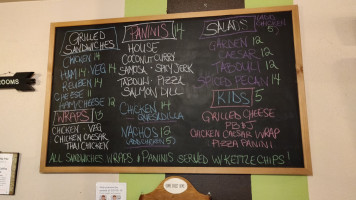 GRILLED
SANDWICHES
CHICKEN 14
HAM 14 VEG 14
REUBEN 14
CHEESE 11
HAM/CHEESE 12
WRAPS 13
CHICKEN VEG
CHICKEN CAESAR
THAI CHICKEN
PANINIS 14
HOUSE
COCONUT CURRY
SAMOSA SPICY JERK
TABOULI PIZZA
SALMON DILL
CHICKEN 14
QUESADILLA
NACHOS 12
ADD CHICKEN 5
SALADS
ADD CHICKEN 5
GARDEN 12
CAESAR 12
TABOULI 12
SPICED PECAN 14
KIDS 5
GRILLED CHEESE
PB&J
CHICKEN CAESAR WRAP
PIZZA PANINI
ALL SANDWICHES WRAPS & PANINIS SERVED W/ KETTLE CHIPS!
ROOMS